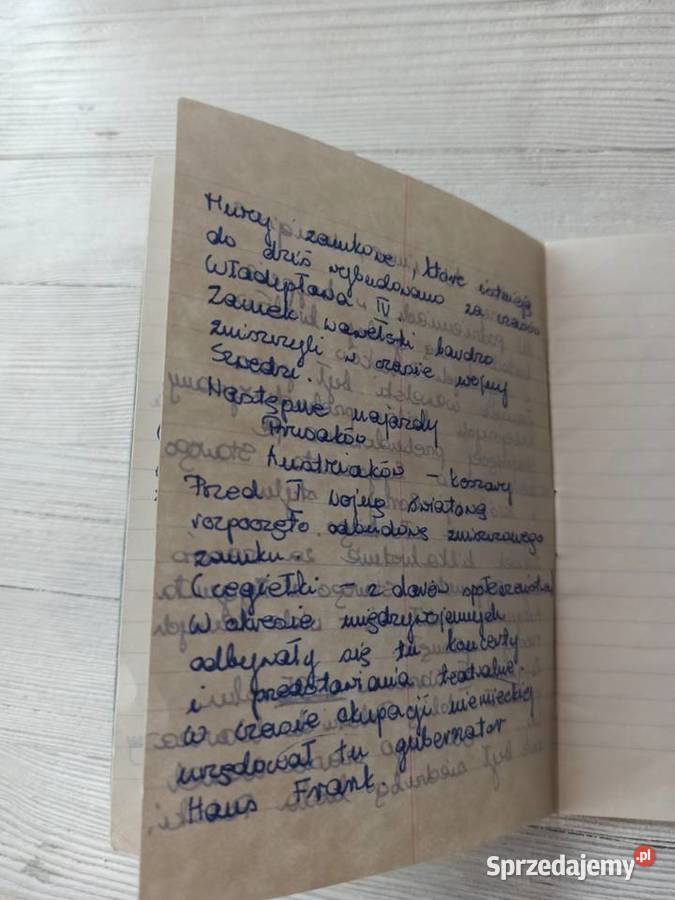 Mury zamkowe, które istnieją
do dziś wybudowano za czasów
Władysława IV
Zamek wawelski bardzo
zniszczyli w czasie wojny
Szwedzi.
Następne najazdy
Prusaków
Austriaków – koszary
Przed I wojną światową
rozpoczęto odbudowę zniszczonego
zamku.
Cegiełki – z darów społeczeństwa
W okresie międzywojennych
odbywały się tu koncerty
i przedstawiania teatralne.
W czasie okupacji niemieckiej
urzędował tu gubernator
Hans Frank.
Sprzedajemy.pl